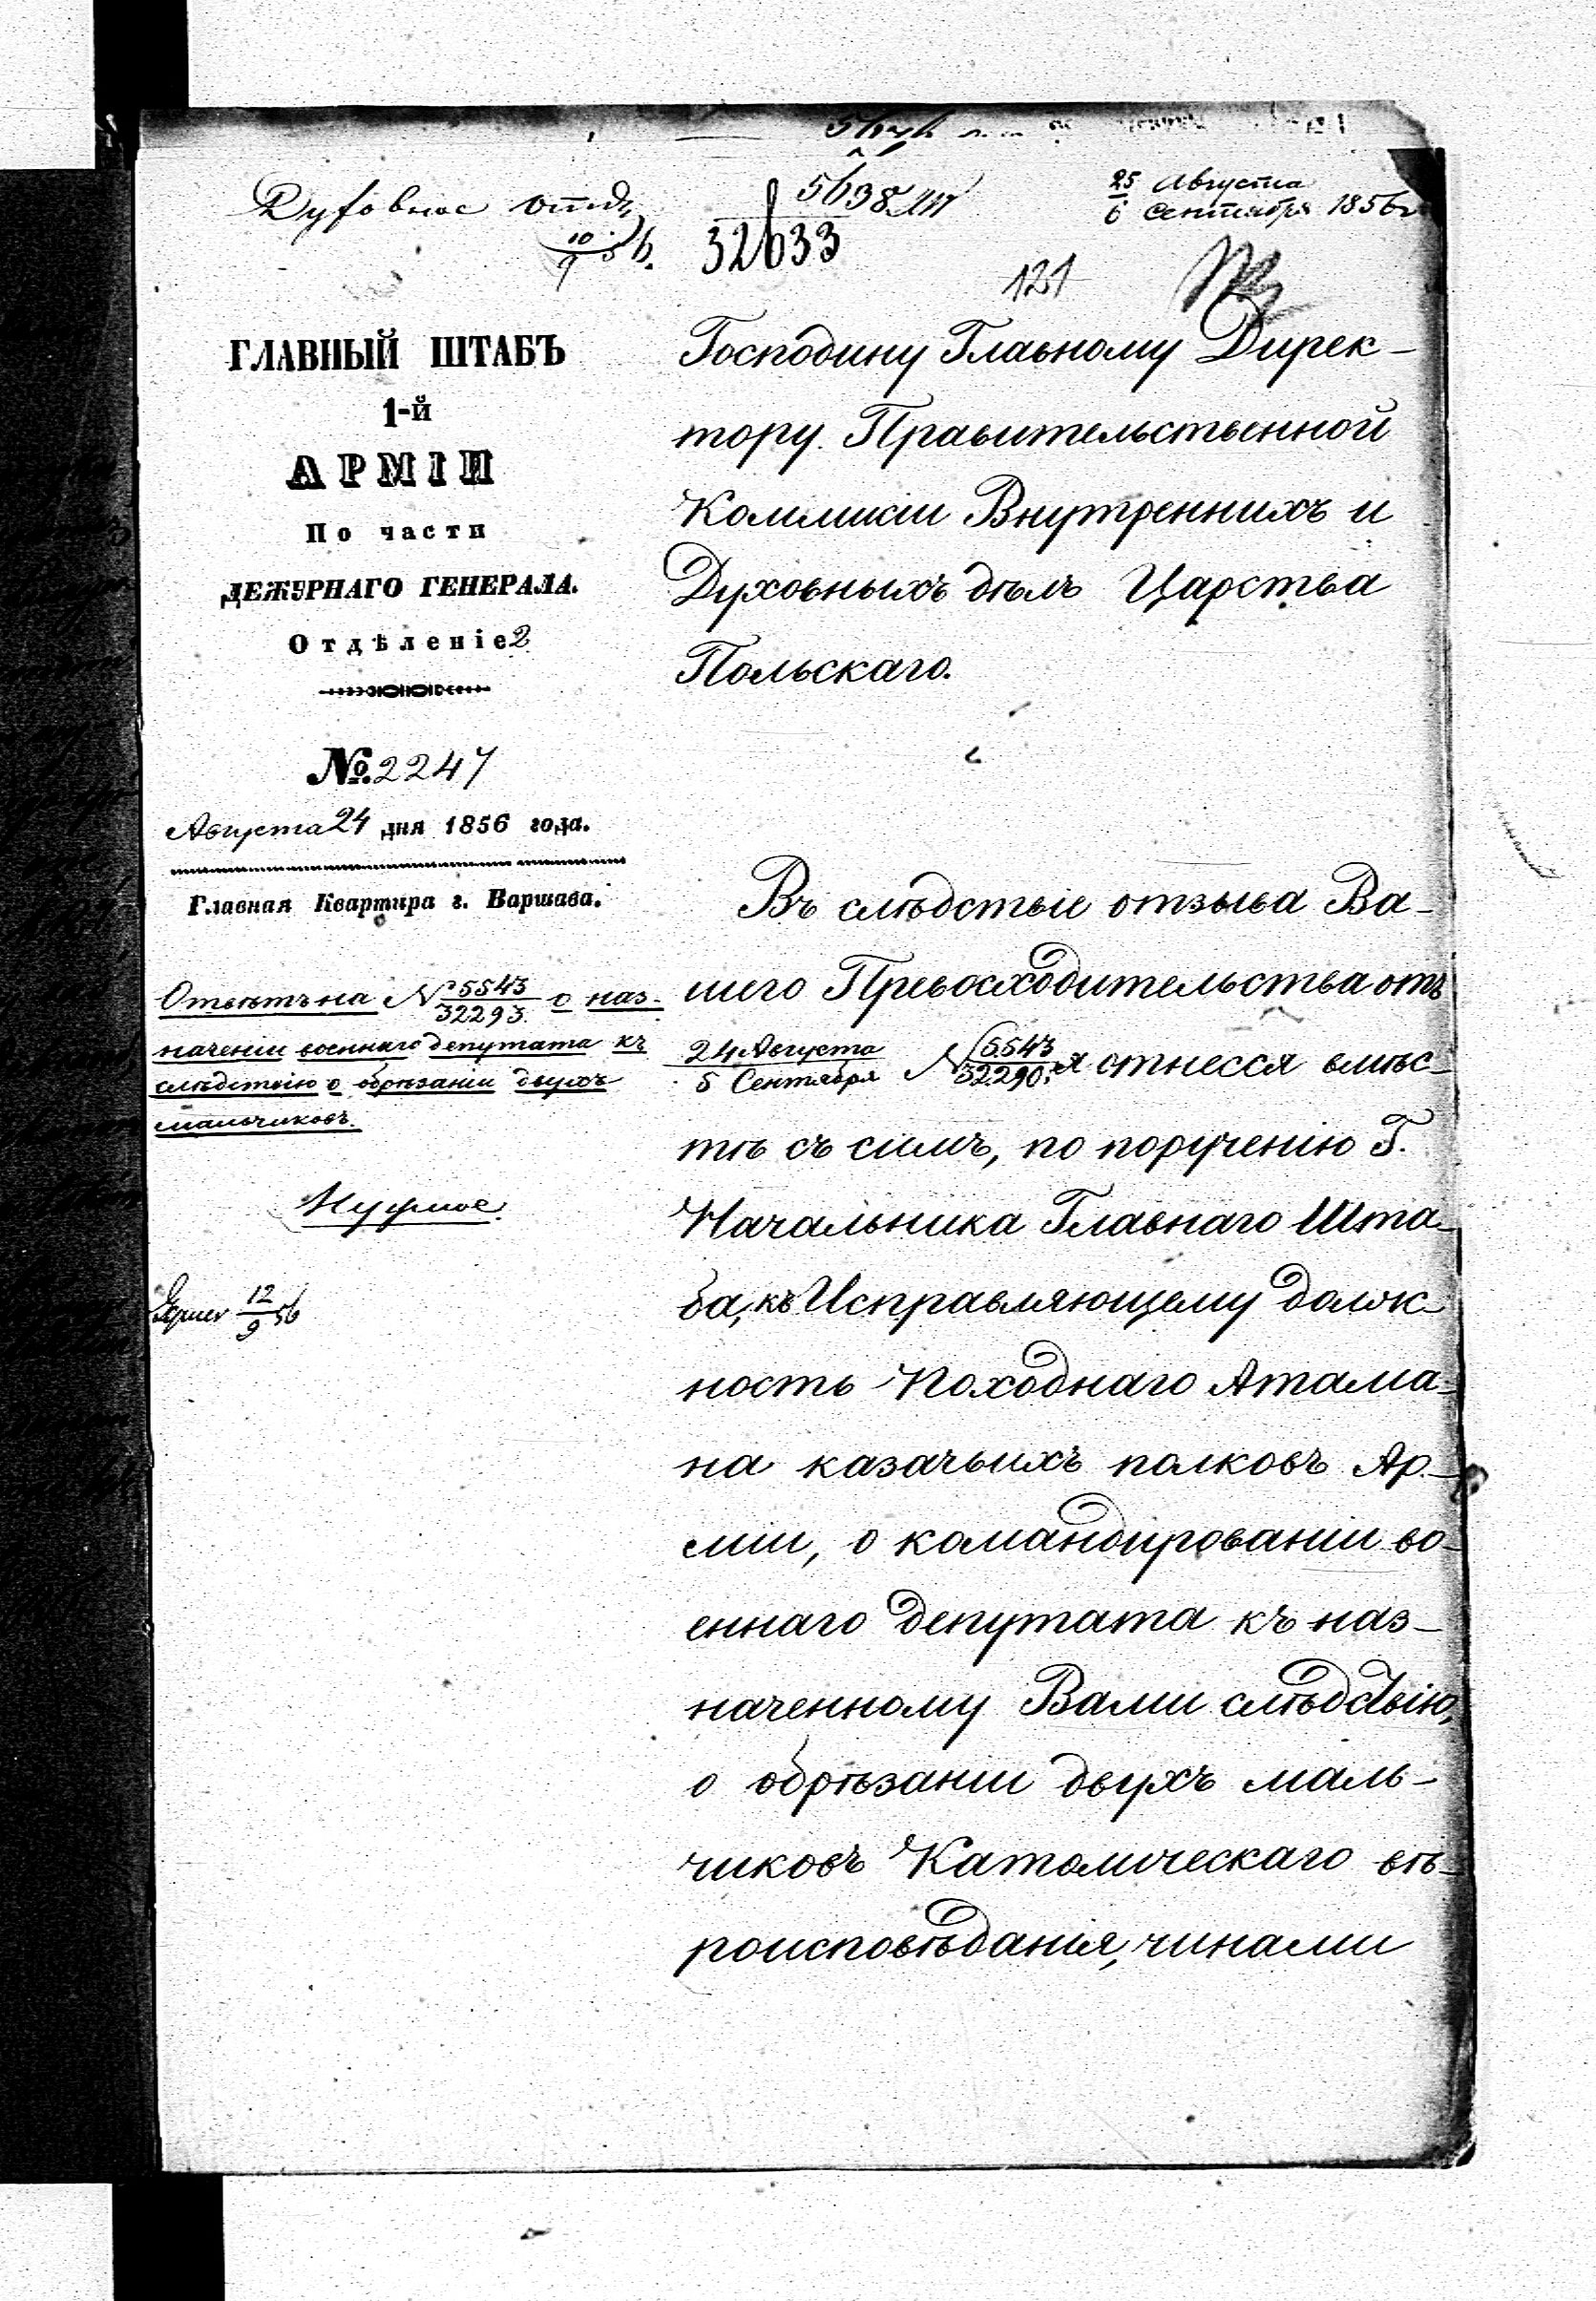 Духовное отд.
10/9 56.
5638
32633
25 Августа
6 Сентября 1856
121
ГЛАВНЫЙ ШТАБЪ
1-й
АРМІИ
По части
ДЕЖУРНАГО ГЕНЕРАЛА.
Отдѣленіе 2
№ 2247
Августа 24 дня 1856 года.
Главная Квартира г. Варшава.
Отвѣтъ на № 5543/32293. о наз-
наченіи военнаго депутата къ
слѣдствію о обрѣзаніи двухъ
мальчиковъ.
Нужное.
12/9 56
Господину Главному Дирек-
тору Правительственной
Коммисіи Внутреннихъ и
Духовныхъ дѣлъ Царства
Польскаго.
Въ слѣдствіе отзыва Ва-
шего Превосходительства отъ
24 Августа/5 Сентября № 5543/32290. я отнесся вмѣс-
тѣ съ симъ, по порученію Г.
Начальника Главнаго Шта-
ба, къ Исправляющему долж-
ность Походнаго Атама-
на казачьихъ полковъ Ар-
міи, о командированіи во-
еннаго депутата къ наз-
наченному Вами слѣдствію,
о обрѣзаніи двухъ маль-
чиковъ Католическаго вѣ-
роисповѣданія, чинами